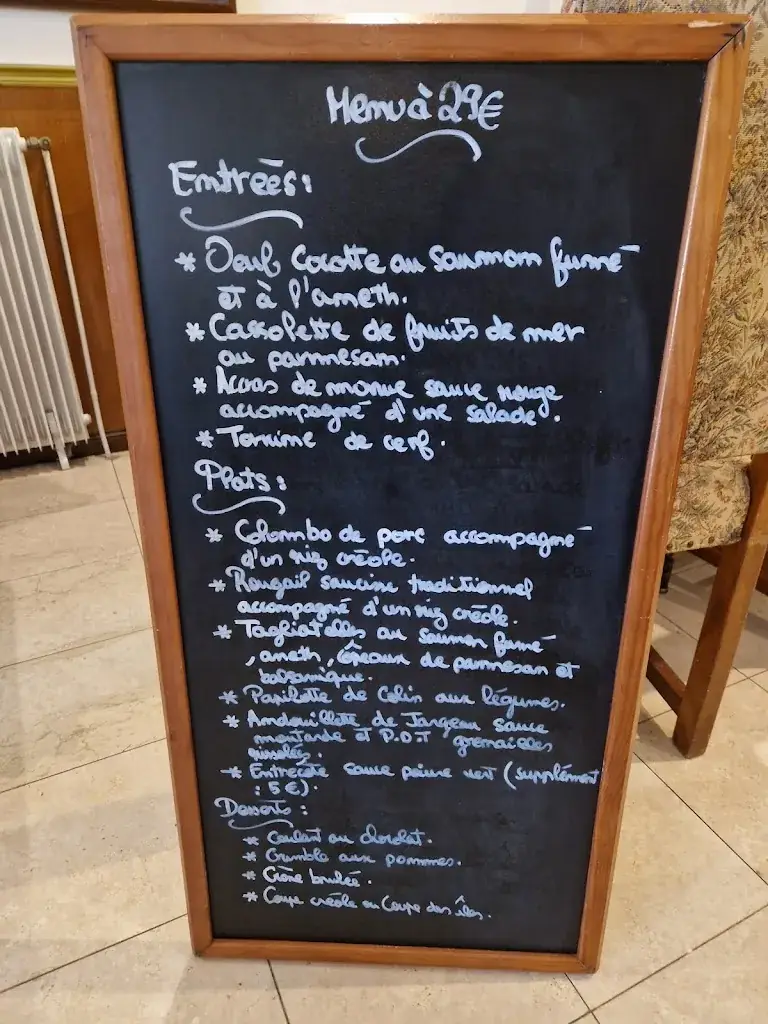 Menu à 29€
Entreés:
* Oeuf Cocotte au saumon fumé
et à l'aneth.
* Cassolette de fruits de mer
au parmesan.
* Acras de morue sauce rouge
accompagné d'une salade.
* Terrine de cerf.
Plats:
* Colombo de porc accompagné
d'un riz créole.
* Rougail saucisse traditionnel
accompagné d'un riz créole.
* Tagliatelles au saumon fumé
, aneth, de parmesan et
balsamique.
* Papillote de Colin aux légumes.
* Andouillette de Jargeau sauce
moutarde et P.D.T grenailles
rissolés.
* Entrecôte sauce poivre vert (supplément
: 5 €).
Desserts:
* Coulant au chocolat.
* Crumble aux pommes.
* Crème brulée.
* Coupe créole ou Coupe des îles.